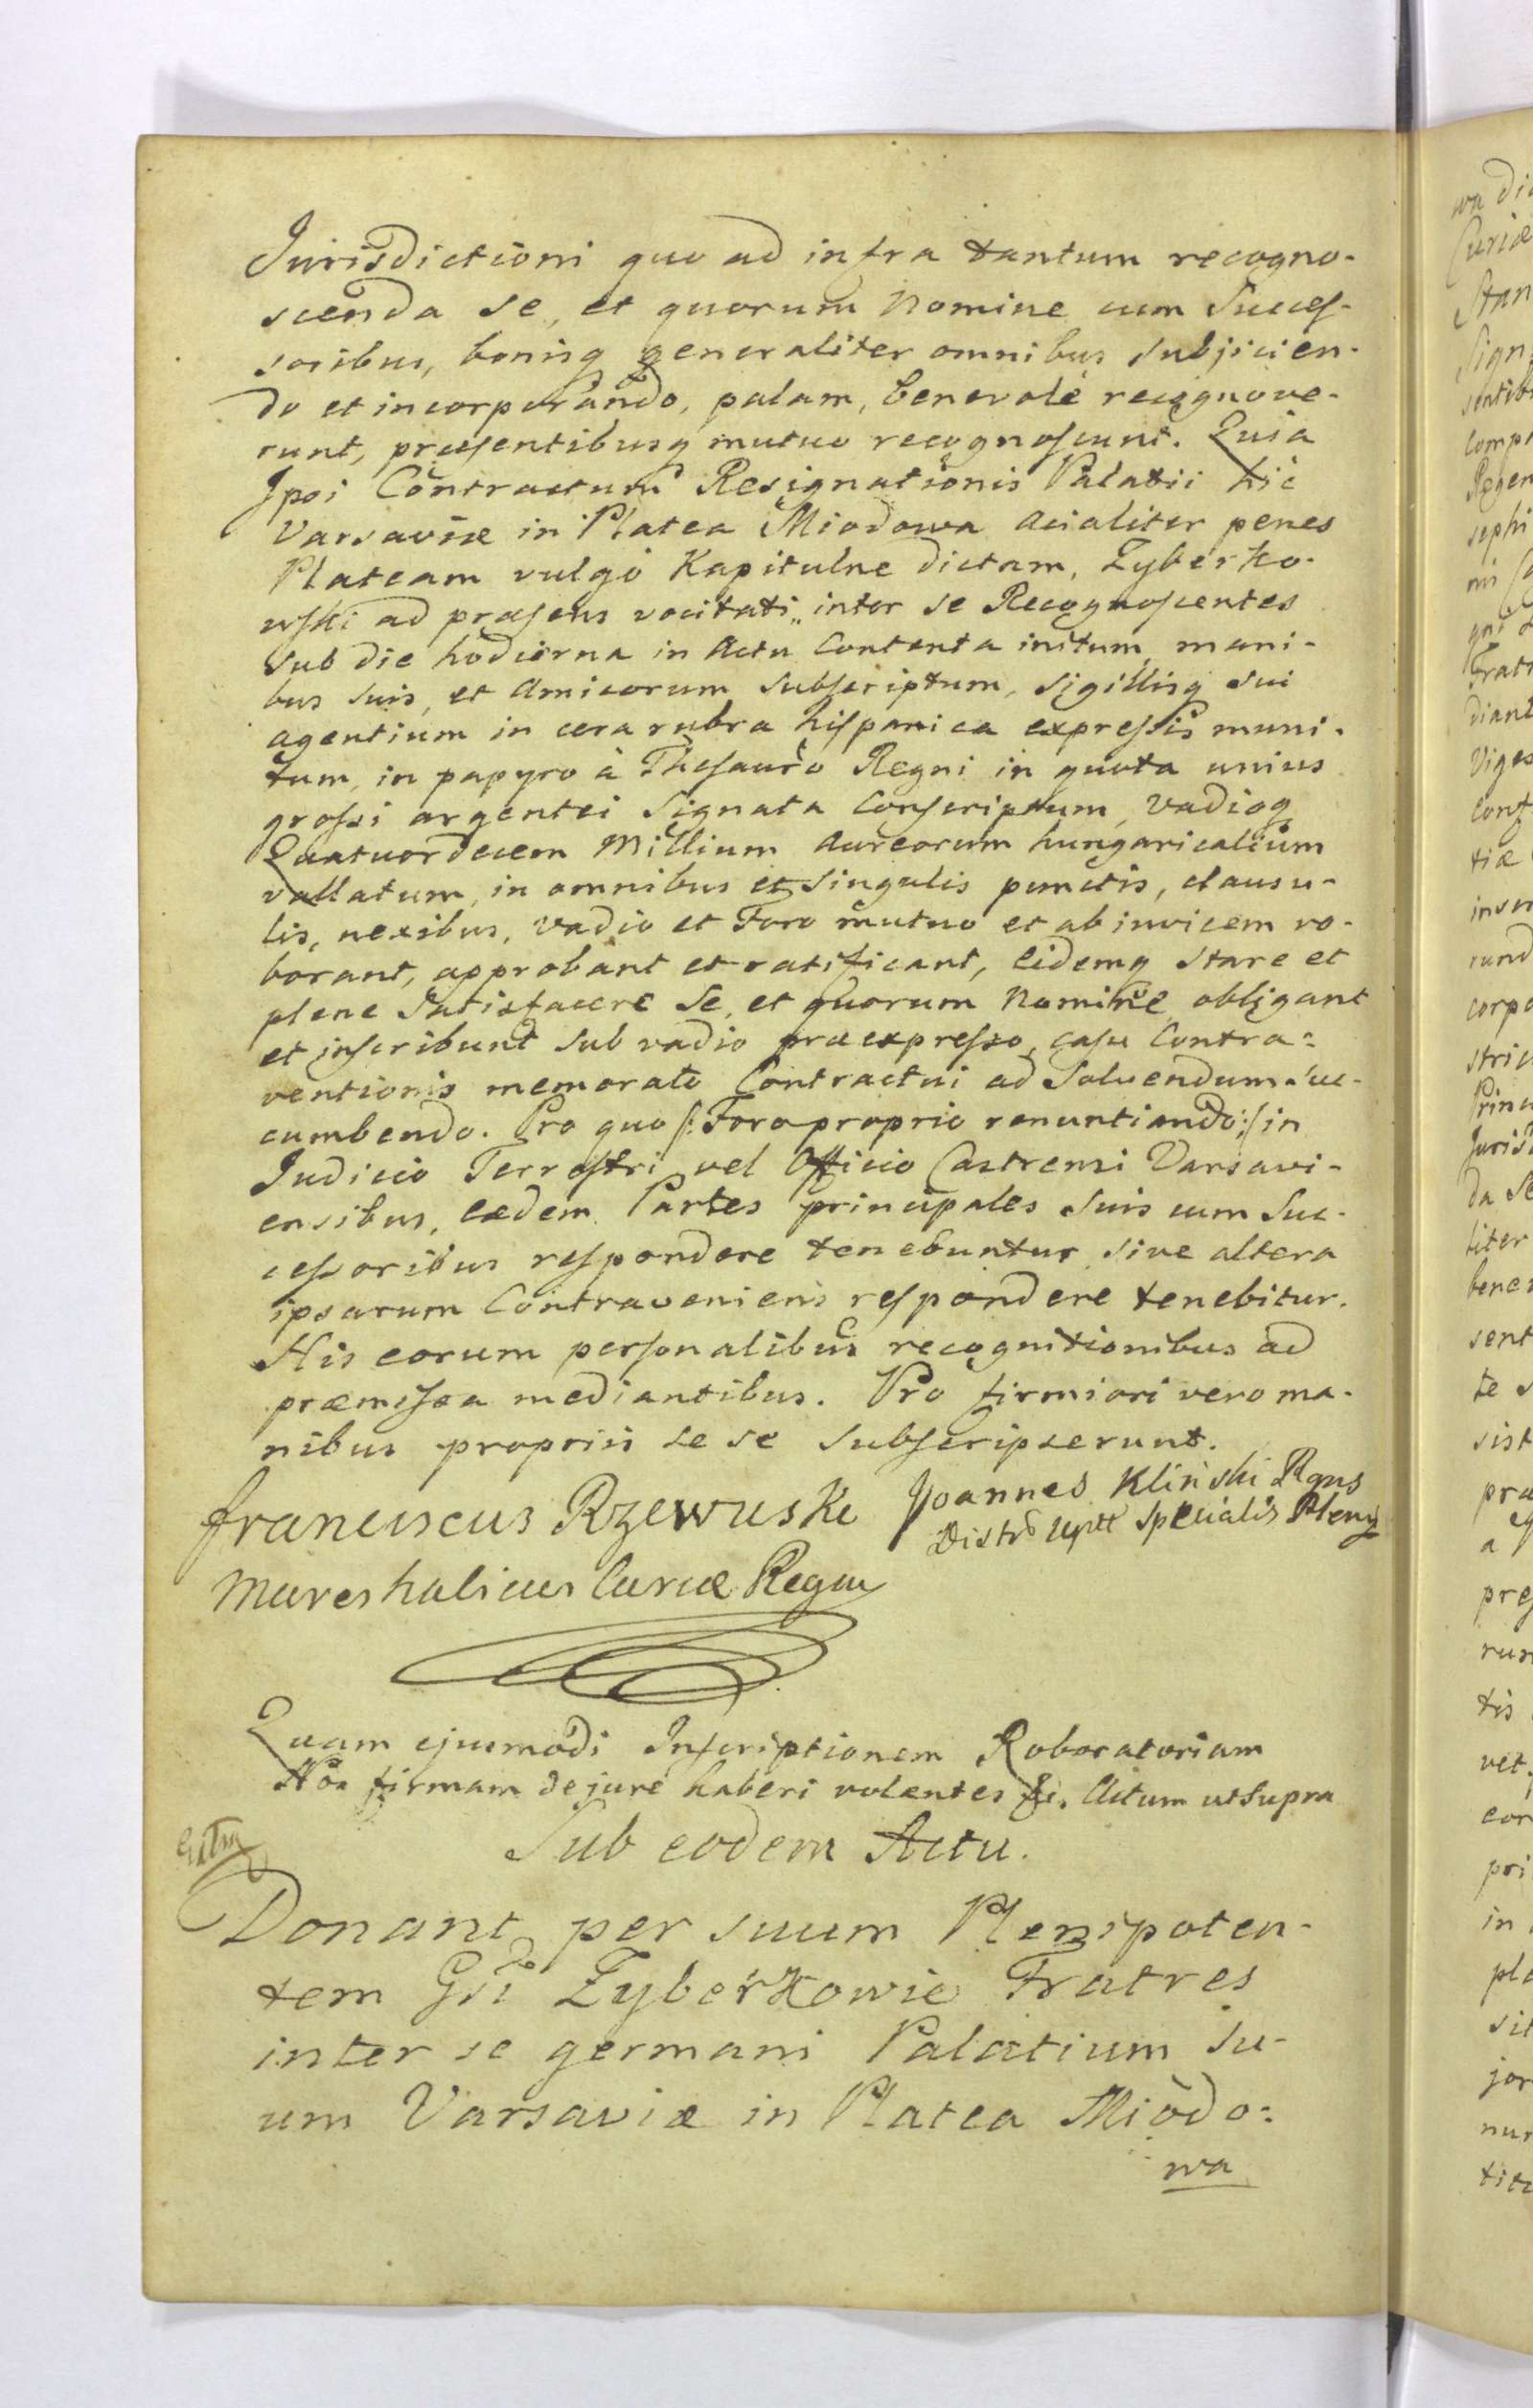 Jurisdictioni quo ad infra tantum recogno-
scenda se, et quorum Nomine cum Succes-
soribus, bonisq generaliter omnibus subjicien-
do et incorporando, palam, benevole recognove-
runt, præsentibusq mutuo recognoscunt. Quia
Ipsi Contractum Resignationis Palatii hic
Varsaviæ in Platea Miodowa Acialiter penes
Plateam vulgo Kapitulne dictam, Zyberko-
wski ad præsens vocitati, inter se Recognoscentes
sub die hodierna in Actu Contenta initum, mani-
bus suis, et Amicorum subscriptum, sigillisq sui
agentium in cera rubra hispanica expressis muni-
tum, in papyro à Thesauro Regni in quota unius
grossi argentei Signata Conscriptum, Vadioq
Quatuordecem Millium Aureorum hungaricalium
vallatum, in omnibus et singulis punctis, clausu-
lis, nexibus, vadio et Foro mutuo et ab invicem ro-
borant, approbant et ratificant, Eidemq stare et
plene satisfacere se, et quorum Nomine obligant
et inscribunt sub vadio præexpresso, casu Contra-
ventionis memorato Contractui ad solvendum suc-
cumbendo. Pro quo /: Foro proprio renuntiando :/ in
Judicio Terrestri vel Officio Castrensi Varsavi-
ensibus, Eædem Partes principales suis cum Suc-
cessoribus respondere tenebuntur sive altera
ipsarum Contraveniens respondere tenebitur.
His eorum personalibus recognitionibus ad
præmissa mediantibus. Pro firmiori vero ma-
nibus propriis se se subscripserunt.
Franciscus Rzewuski
Mareshalicus Curiæ Regni
Joannes Kliński Rgns
Distr uptt specialis Plenq
Quam ejusmodi Inscriptionem Roboratoriam
Nos firmam de jure haberi volentes &c. Actum ut supra
Sub eodem Actu.
Donant per suum Plenipoten-
tem Gsi Zyberkowie Fratres
inter se germani Palatium su-
um Varsaviæ in Platea Miodo-
wa